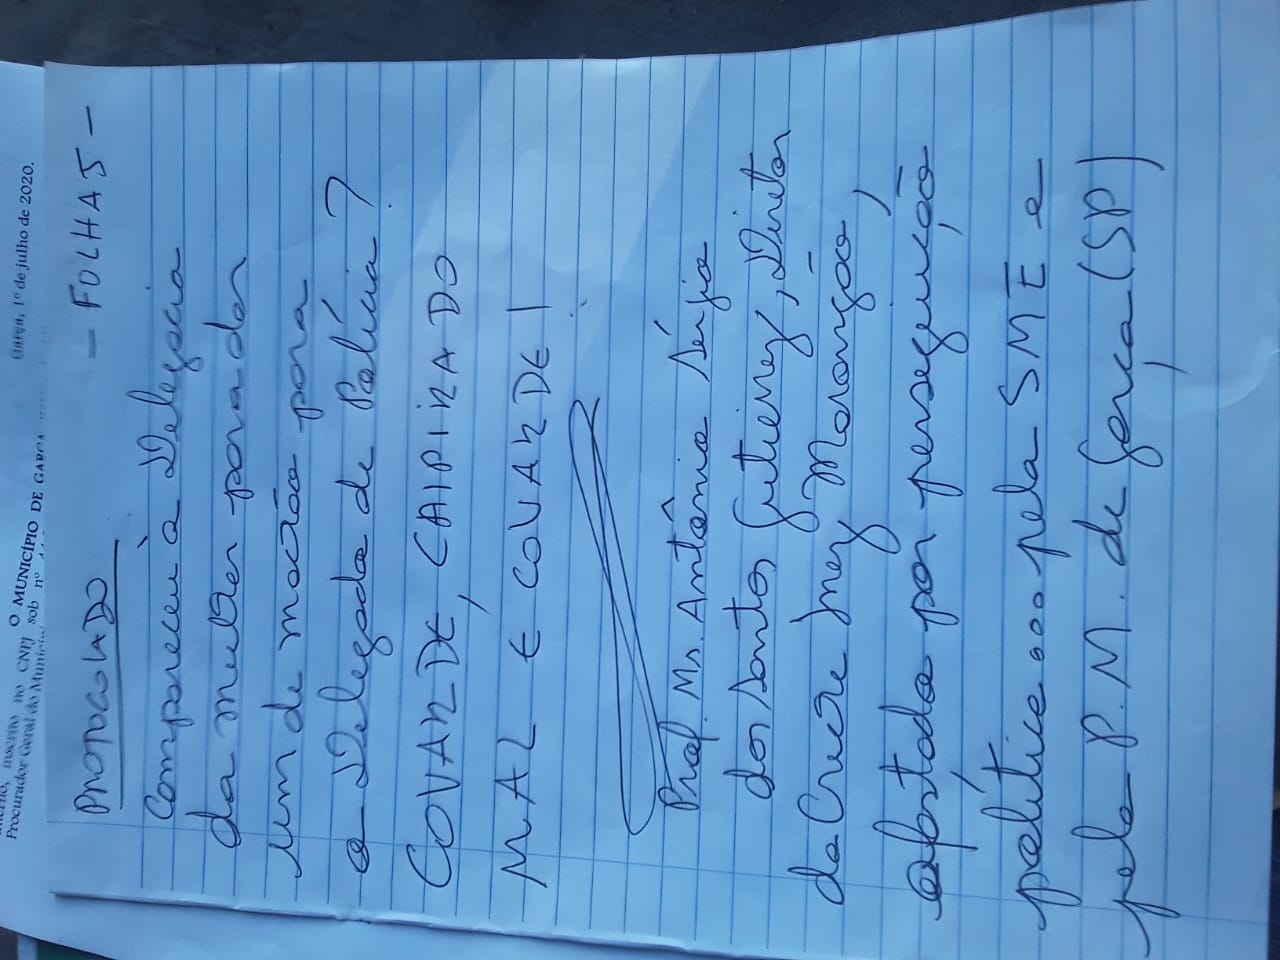 Garça, 1º de julho de 2020.
O MUNICÍPIO DE GARÇA
inscrito no CNPJ sob nº
Procurador Geral do Município
PROTOCOLADO - FOLHA 5 -
Compareceu à Delegacia
da mulher para dar
um de machão para
a Delegada de Polícia?
COVARDE, CAIPIRADO
MAL E COVARDE!
Prof. Ms. Antônio Sérgio
dos Santos Gutierrez, Diretor
da Creche Inez Marangão,
afastado por perseguição
política... pela SME e
pela P.M. de Garça (SP)